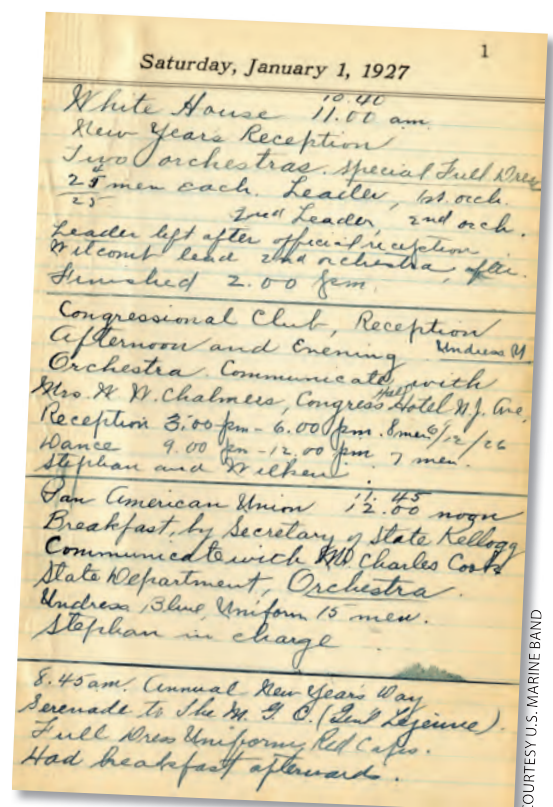 1
Saturday, January 1, 1927
10.40
White House 11.00 am.
New Years Reception
Two orchestras. Special Full Dress
25 men each. Leader, 1st orch.
25 2nd Leader, 2nd orch.
Leader left after official reception
Witcomb lead 2nd orchestra, after.
Finished 2.00 pm.
Congressional Club, Reception
Afternoon and Evening Undress
Orchestra. Communicate with
Mrs. W. W. Chalmers, Congress Hotel N.J. Ave,
Reception 3:00 pm - 6.00 pm. 8 men /12/26
Dance 9.00 pm - 12.00 pm. 7 men.
Stephan and Wilken
11.45
Pan American Union 12.00 noon
Breakfast, by Secretary of State Kellogg
Communicate with Mr Charles Cook
State Department, Orchestra.
Undress, Blue, Uniform 15 men.
Stephan in charge
8.45 am. Annual New Year's Day
Serenade to The M. G. C. (Genl Lejeune).
Full Dress Uniform, Red Capes.
Had breakfast afterwards.
COURTESY U.S. MARINE BAND